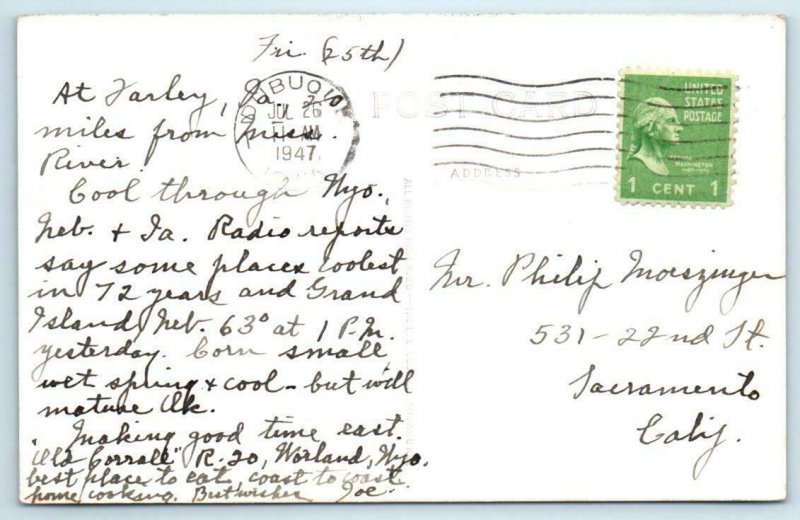 Fri. (25th)
At Farley, Ia. 20
miles from Miss.
River.
Cool through Wyo.,
Neb. & Ia. Radio reports
say some places coolest
in 72 years and Grand
Island, Neb. 63° at 1 P.M.
yesterday. Corn small
wet spring & cool - but will
mature Ok.
Making good time east.
"Old Corral" R. 20, Worland, Wyo.
best place to eat, coast to coast.
home cooking. Best wishes Joe.
DUBUQUE
JUL 26
AM
1947
POST CARD
ADDRESS
UNITED
STATES
POSTAGE
WASHINGTON
1 CENT 1
Mr. Philip Moeszinger
531-22nd St.
Sacramento
Calif.